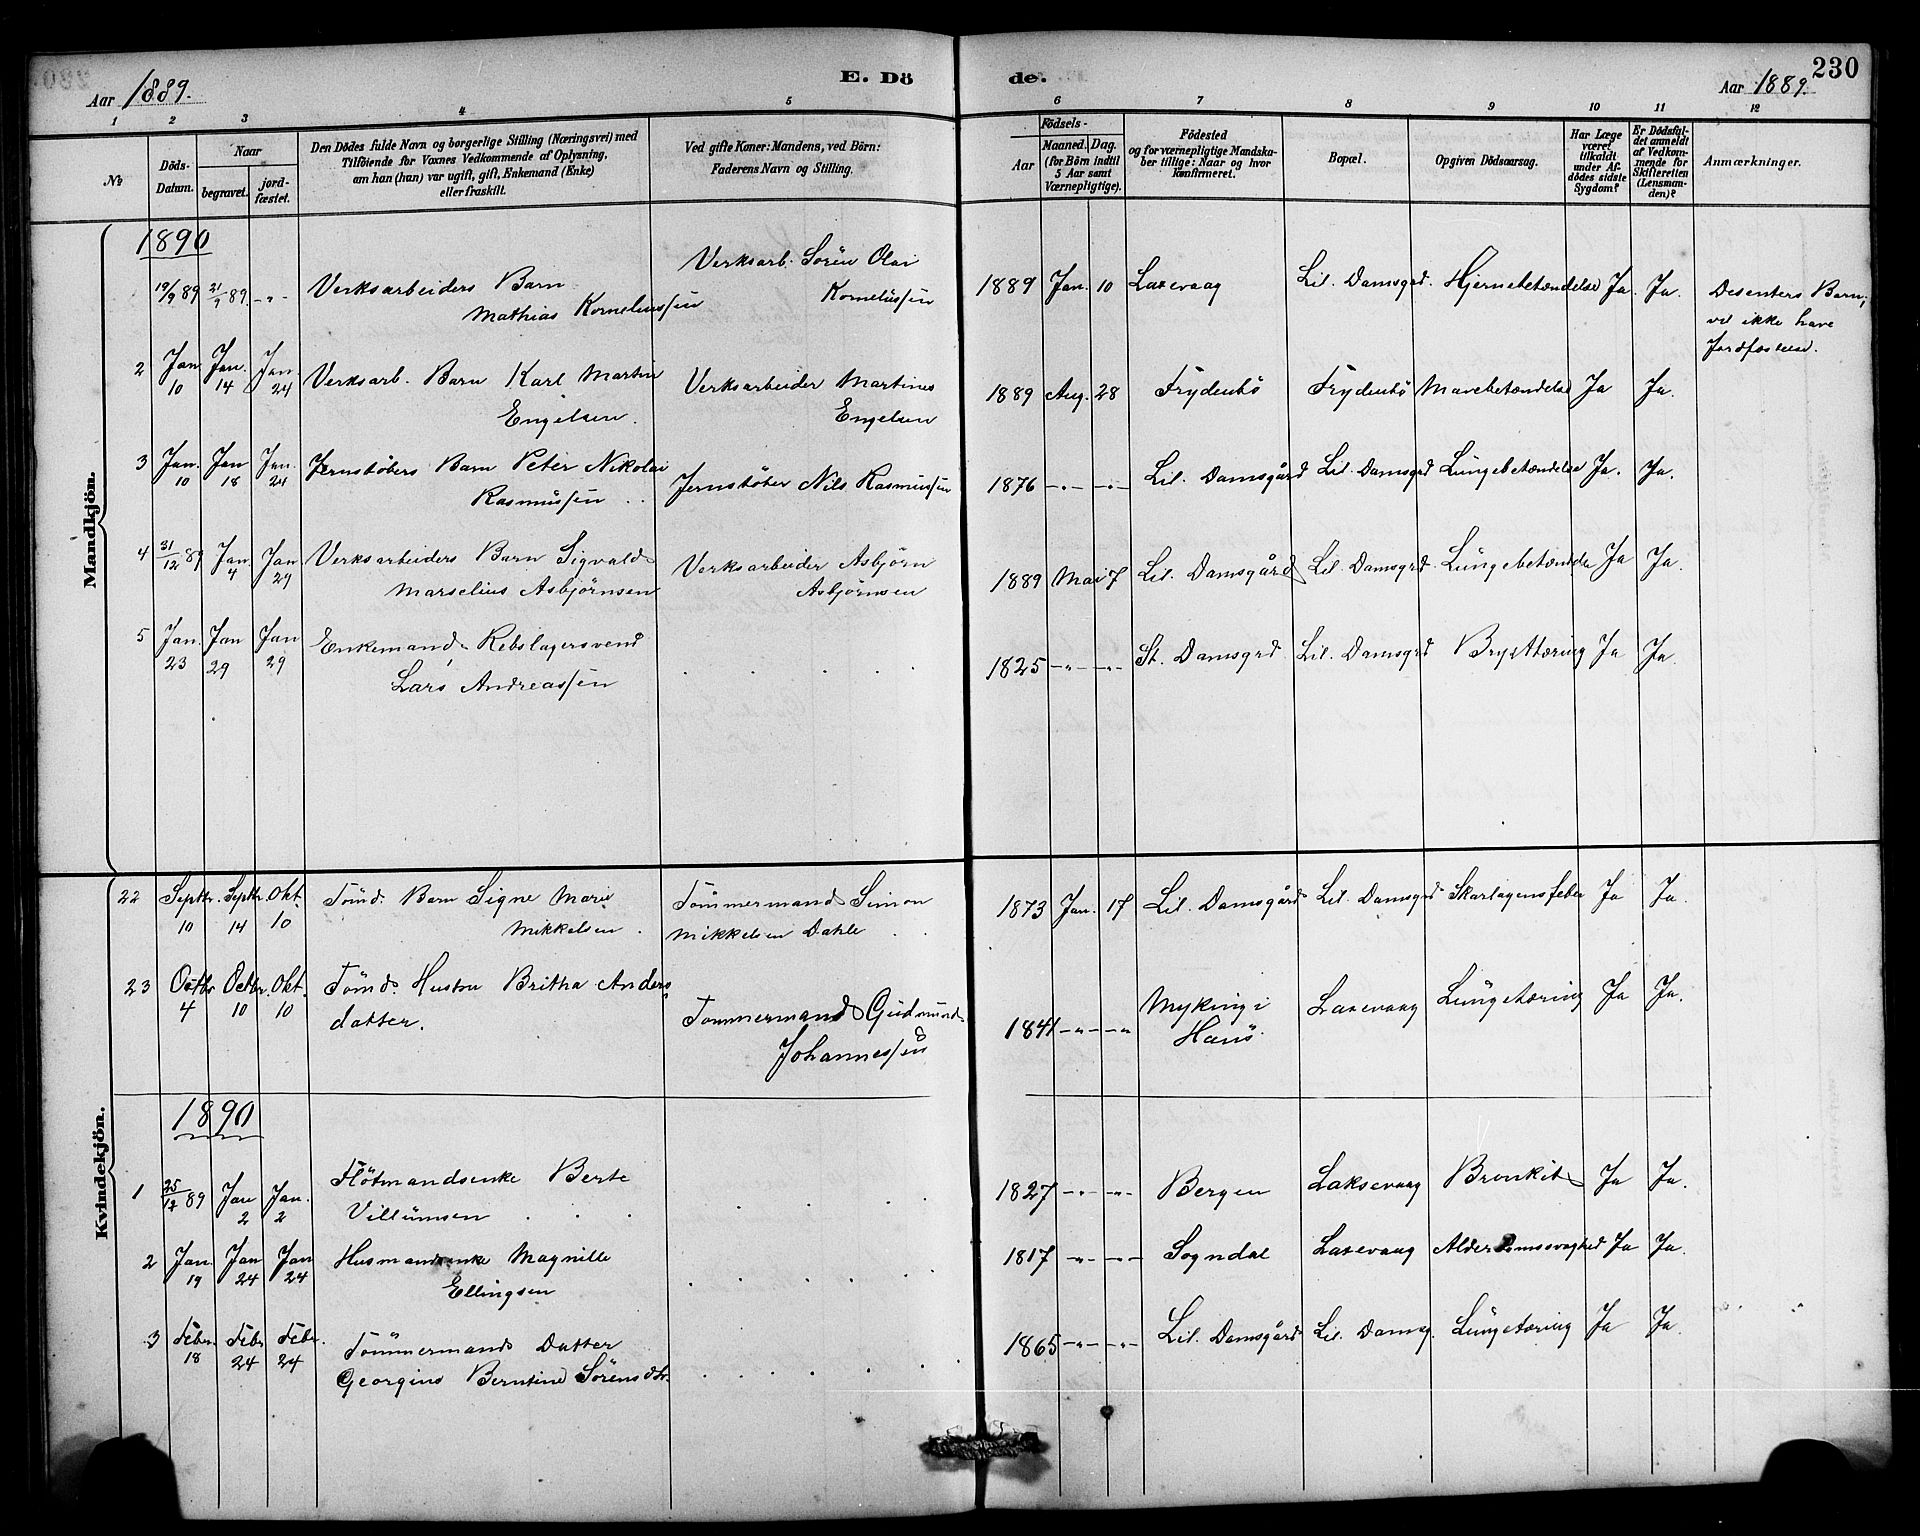 230
Aar 1889.
E. Dö
de.
Aar 1889.
1 2 3 4 5 6 7 8 9 10 11 12
№
Döds-
Datum.
Naar
begravet.
jord-
fæstet.
Den Dödes fulde Navn og borgerlige Stilling (Næringsvei) med
Tilföiende for Voxnes Vedkommende af Oplysning,
om han (hun) var ugift, gift, Enkemand (Enke)
eller fraskilt.
Ved gifte Koner: Mandens, ved Börn:
Faderens Navn og Stilling.
Födsels-
Aar
Maaned. Dag.
(for Börn indtil
5 Aar samt
Værnepligtige).
Födested
og for værnepligtige Mandska-
ber tillige: Naar og hvor
konfirmeret.
Bopæl.
Opgiven Dödsaarsag.
Har Læge
været
tilkaldt
under Af-
dödes sidste
Sygdom?
Er Dödsfal-
det anmeldt
af Vedkom-
mende for
Skifteretten
(Lensman-
den)?
Anmærkninger.
Mandkjön.
1890
19/9 89 21/9 89 -"- Verksarbeiders Barn
Mathias Korneliussen
Verksarb. Sören Olai
Korneliussen
1889 Jan. 10 Laxevaag Lil. Damsgrd. Hjernebetændelse Ja. Ja. Desenters Barn,
vil ikke have
Jordfæstelse.
2 Jan. 10 Jan. 14 Jan. 24 Verksarb. Barn Karl Martin
Engelsen.
Verksarbeider Martines
Engelsen
1889 Aug. 28 Frydenbö Frydenbö Mavebetændelse Ja Ja.
3 Jan. 10 Jan 18 Jan. 24 Jernstöbers Barn Peter Nikolai
Rasmussen
Jernstöber Nils Rasmussen
1876 -"- -"- Lil. Damsgård Lil. Damsgrd Lungebetændelse Ja. Ja.
4 31/12 89 Jan. 4 Jan 29 Verksarbeiders Barn Sigvald
Marselius Asbjörnsen
Verksarbeider Asbjörn
Asbjörnsen
1889 Mai 7 Lil. Damsgård Lil. Damsgrd. Lungebetændelse Ja Ja.
5 Jan. 23 Jan 29 Jan 29 Enkemand Rebslagersvend
Lars Andreassen
1825 -"- -"- St. Damsgrd Lil. Damsgrd Brysttæring Ja Ja.
Kvindekjön.
22 Septbr. 10 Septbr. 14 Okt. 10 Tömd. Barn Signe Marie
Mikkelsen.
Tömmermand Simon
Mikkelsen Dahle
1873 Jan. 17 Lil. Damsgård Lil. Damsgrd Skarlagensfeber Ja Ja.
23 Octbr 4 Octbr. 10 Okt. 10 Tömd. Hustru Britha Anders
datter.
Tommermand Gudmund
Johannessen
1841 -"- -"- Myking i
Hosanger Laxevaag Lungetæring Ja Ja.
1890
1 25/12 89 Jan 2 Jan. 2 Flötmandsenke Berte
Villumsen
1827 -"- -"- Bergen Laksevaag Bronkit Ja Ja.
2 Jan. 19 Jan 24 Jan 24 Husmandsenke Magnille
Ellingsen
1817 -"- -"- Sogndal Laxevaag Alderdomssvaghed Ja Ja.
3 Febr. 18 Febr 24 Febr. 24 Tömmermands Datter
Georgine Berntine Sörensdtr.
1865 -"- -"- Lil. Damsgård Lil. Damsg. Lungetæring Ja Ja.